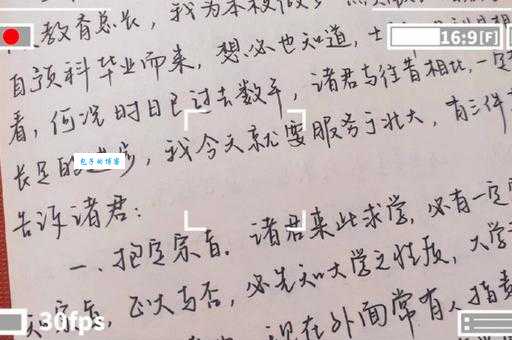 16:9[F]
教育总长，我为本校做
自预科毕业而来，想必也知道，
看，何况时日已过去数年，诸君与往昔相比，一定
长足的进步，我今天就要服务于北大，有三件
包子的博客
告诉诸君：
一、抱定宗旨。诸君来此求学，必有一定
正大与否，必先知大学之性质，大学
现在外面常有人指责
30fps